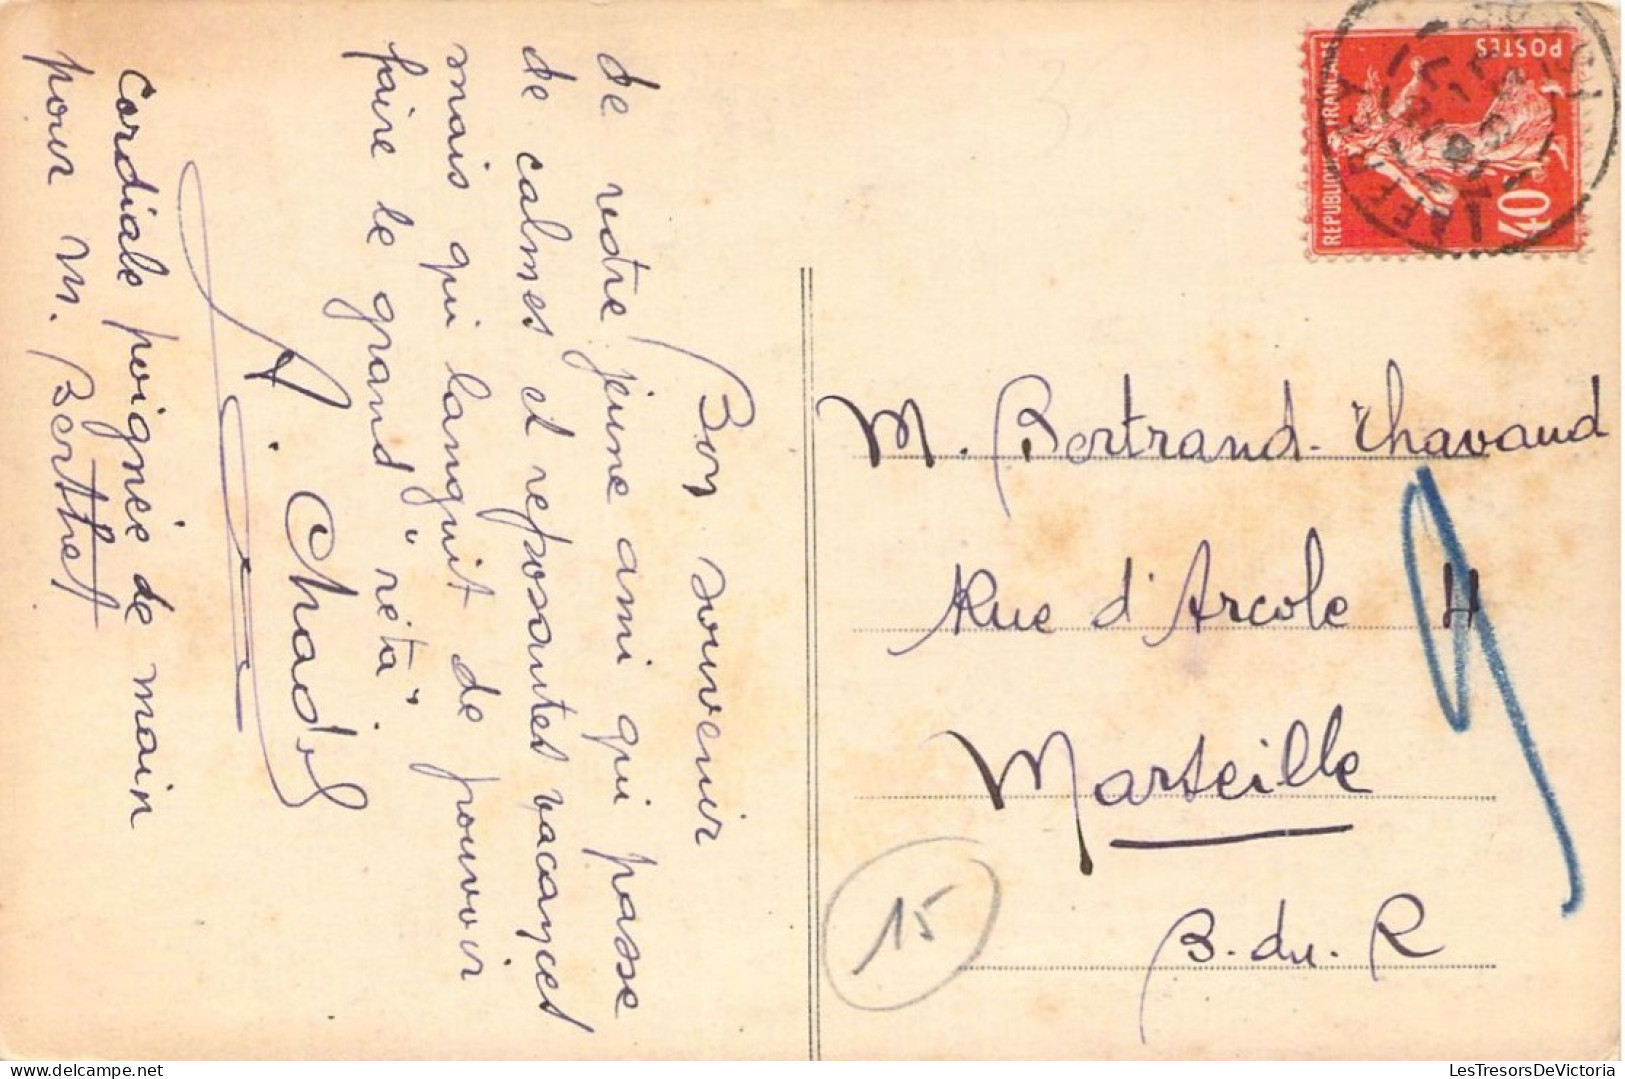 Bon souvenir
de votre jeune ami qui passe
de calmes et reposantes vacances
mais qui languit de pouvoir
faire le grand "rêta"
A. Chadel
Cordiale poignée de main
pour M. Berthet
REPUBLIQUE FRANÇAISE
POSTES
40c
M. Bertrand-Chavaud
Rue d'Arcole 4
Marseille
B. du. R
15
LesTresorsDeVictoria